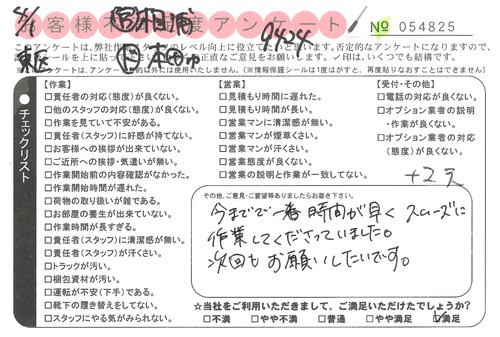 お客様不満足度アンケート
№ 054825
9424
このアンケートは、弊社作業スタッフのレベル向上に役立てたいと思います。否定的なアンケートになりますので、
正直なご意見をお願いします。✓印は、いくつでも結構です。
※このアンケートは、アンケート以外には使用いたしません。(※情報保護シールは1度はがすと、再度貼りなおすことはできません)
チェックリスト
【作業】
□責任者の対応(態度)が良くない。
□他のスタッフの対応(態度)が良くない。
□作業を見ていて不安がある。
□責任者(スタッフ)に好感が持てない。
□お客様への挨拶が出来ていない。
□ご近所への挨拶・気遣いが無い。
□作業開始前の内容確認がなかった。
□作業開始時間が遅れた。
□荷物の取り扱いが雑である。
□お部屋の養生が出来ていない。
□作業時間が長すぎる。
□責任者(スタッフ)に清潔感が無い。
□責任者(スタッフ)が汗くさい。
□トラックが汚い。
□梱包資材が汚い。
□運転が不安(下手)である。
□靴下の履き替えをしてない。
□スタッフにやる気がみられない。
【営業】
□見積もり時間に遅れた。
□見積もり時間が長い。
□営業マンに清潔感が無い。
□営業マンが煙草くさい。
□営業マンが汗くさい。
□営業態度が良くない。
□営業の説明と作業が一致してない。
【受付・その他】
□電話の対応が良くない。
□オプション業者の説明
・作業が良くない。
□オプション業者の対応
(態度)が良くない。
その他、ご意見・ご要望等ありましたらお書き下さい。
今までで一番時間が早くスムーズに
作業してくださっていました。
次回もお願いしたいです。
☆当社をご利用いただきまして、ご満足いただけたでしょうか?
□不満 □やや不満 □普通 □やや満足 ☑満足